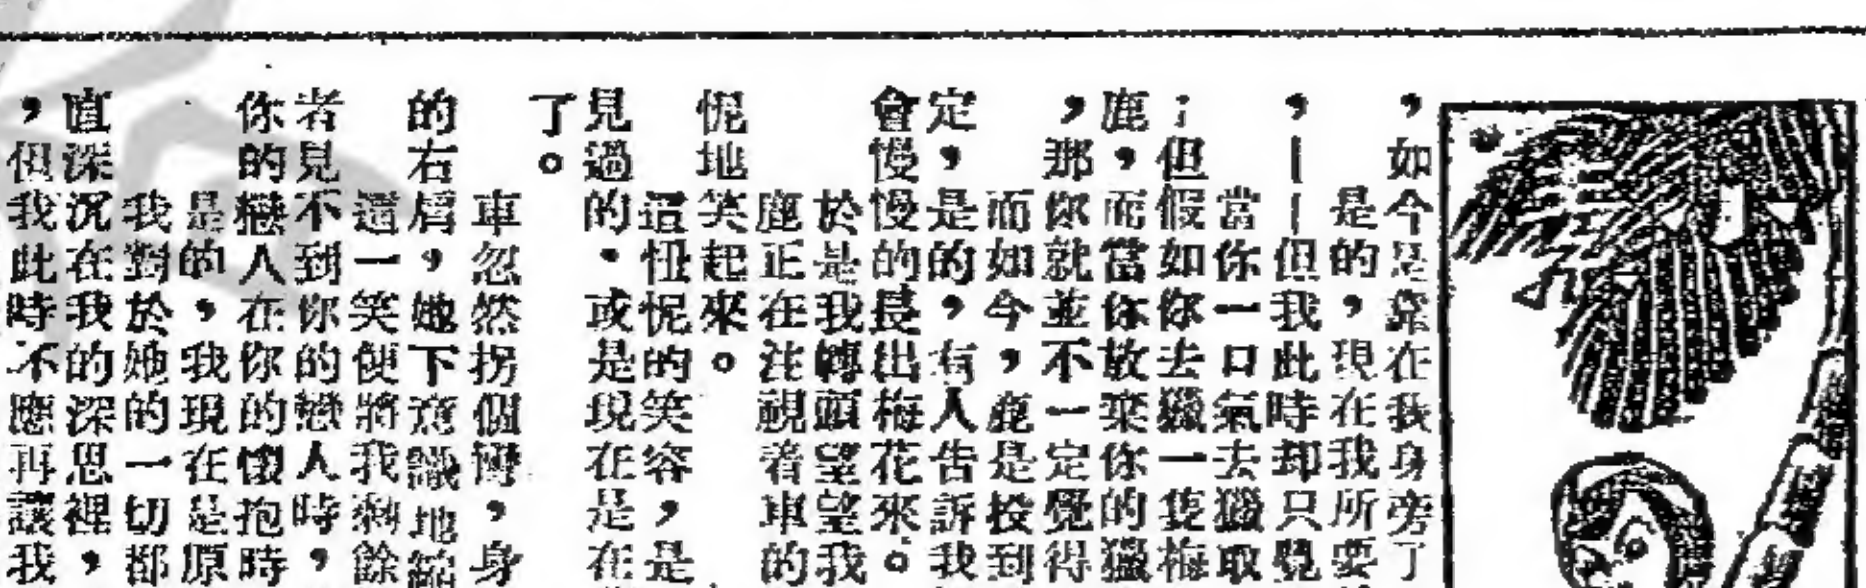 ，如今是靠在我身旁了
是的，現在我所要
，——但我此時却只覺
當你一口氣去獵取
；但假如你去獵一隻梅
鹿，而當你放棄你的獵
，那你就並不一定覺得
而如今，鹿是投到
定，是的，有人告訴我
會慢慢的長出梅花來。
於是我轉頭望望我
鹿正在注視着車的
怩地笑起來。
這忸怩的笑容，是
見過的．或是現在是在
了。
車忽然拐個彎，身
的右肩，她下意識地
這一笑便將我剩餘
者見不到你的戀人時，
你的戀人在你的懷抱時
是的，我現在是原
我對於她的一切都
直深沉在我的深思裡，
，但我此時不應再讓我